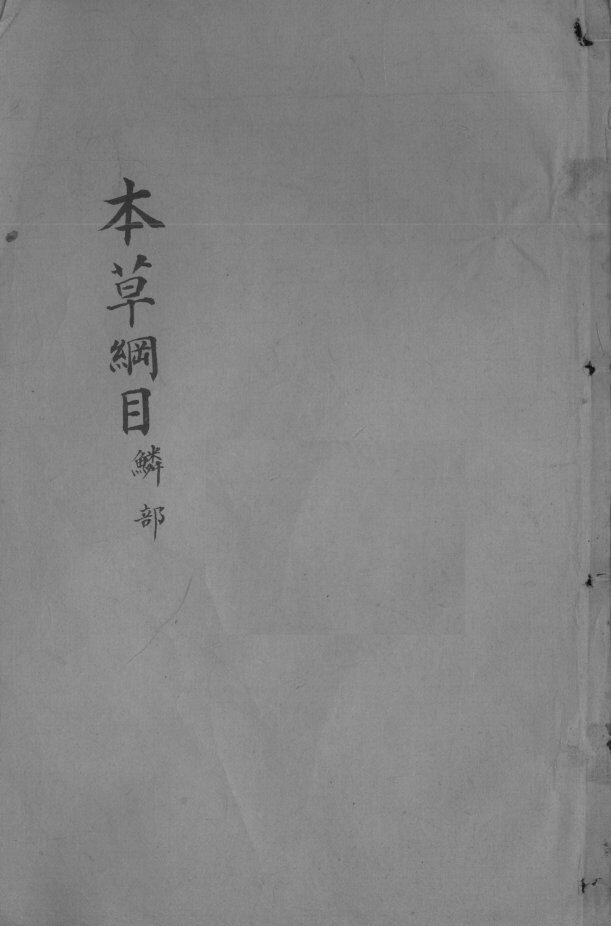 本草綱目
鱗部